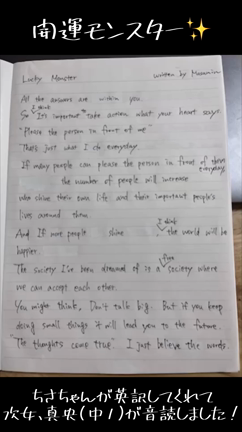 開運モンスター✨
Lucky Monster written by Masamin
All the answers are within you.
I think
So It's important take action what your heart says.
"Please the person in front of me"
That's just what I do everyday.
If many people can please the person in front of them
everyday,
the number of people will increase
who shine their own life and their important people's
lives around them.
I think
And If more people shine, the world will be
happier.
The society I've been dreamed of is a society where
we can accept each other.
You might think, Don't talk big. But if you keep
doing small things it will lead you to the future.
"The thoughts come true" I just believe the words
ちさちゃんが英訳してくれて
次女、真央(中1)が音読しました!